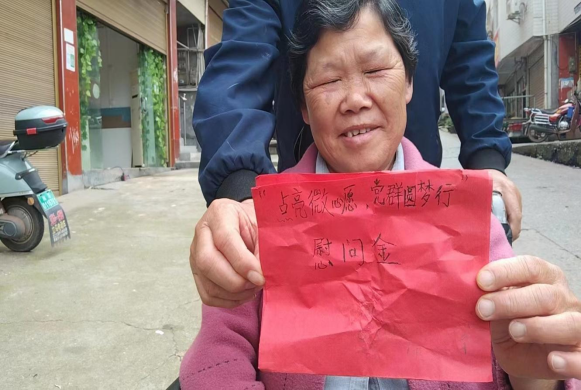 "点亮微心愿，党群圆梦行"
慰问金